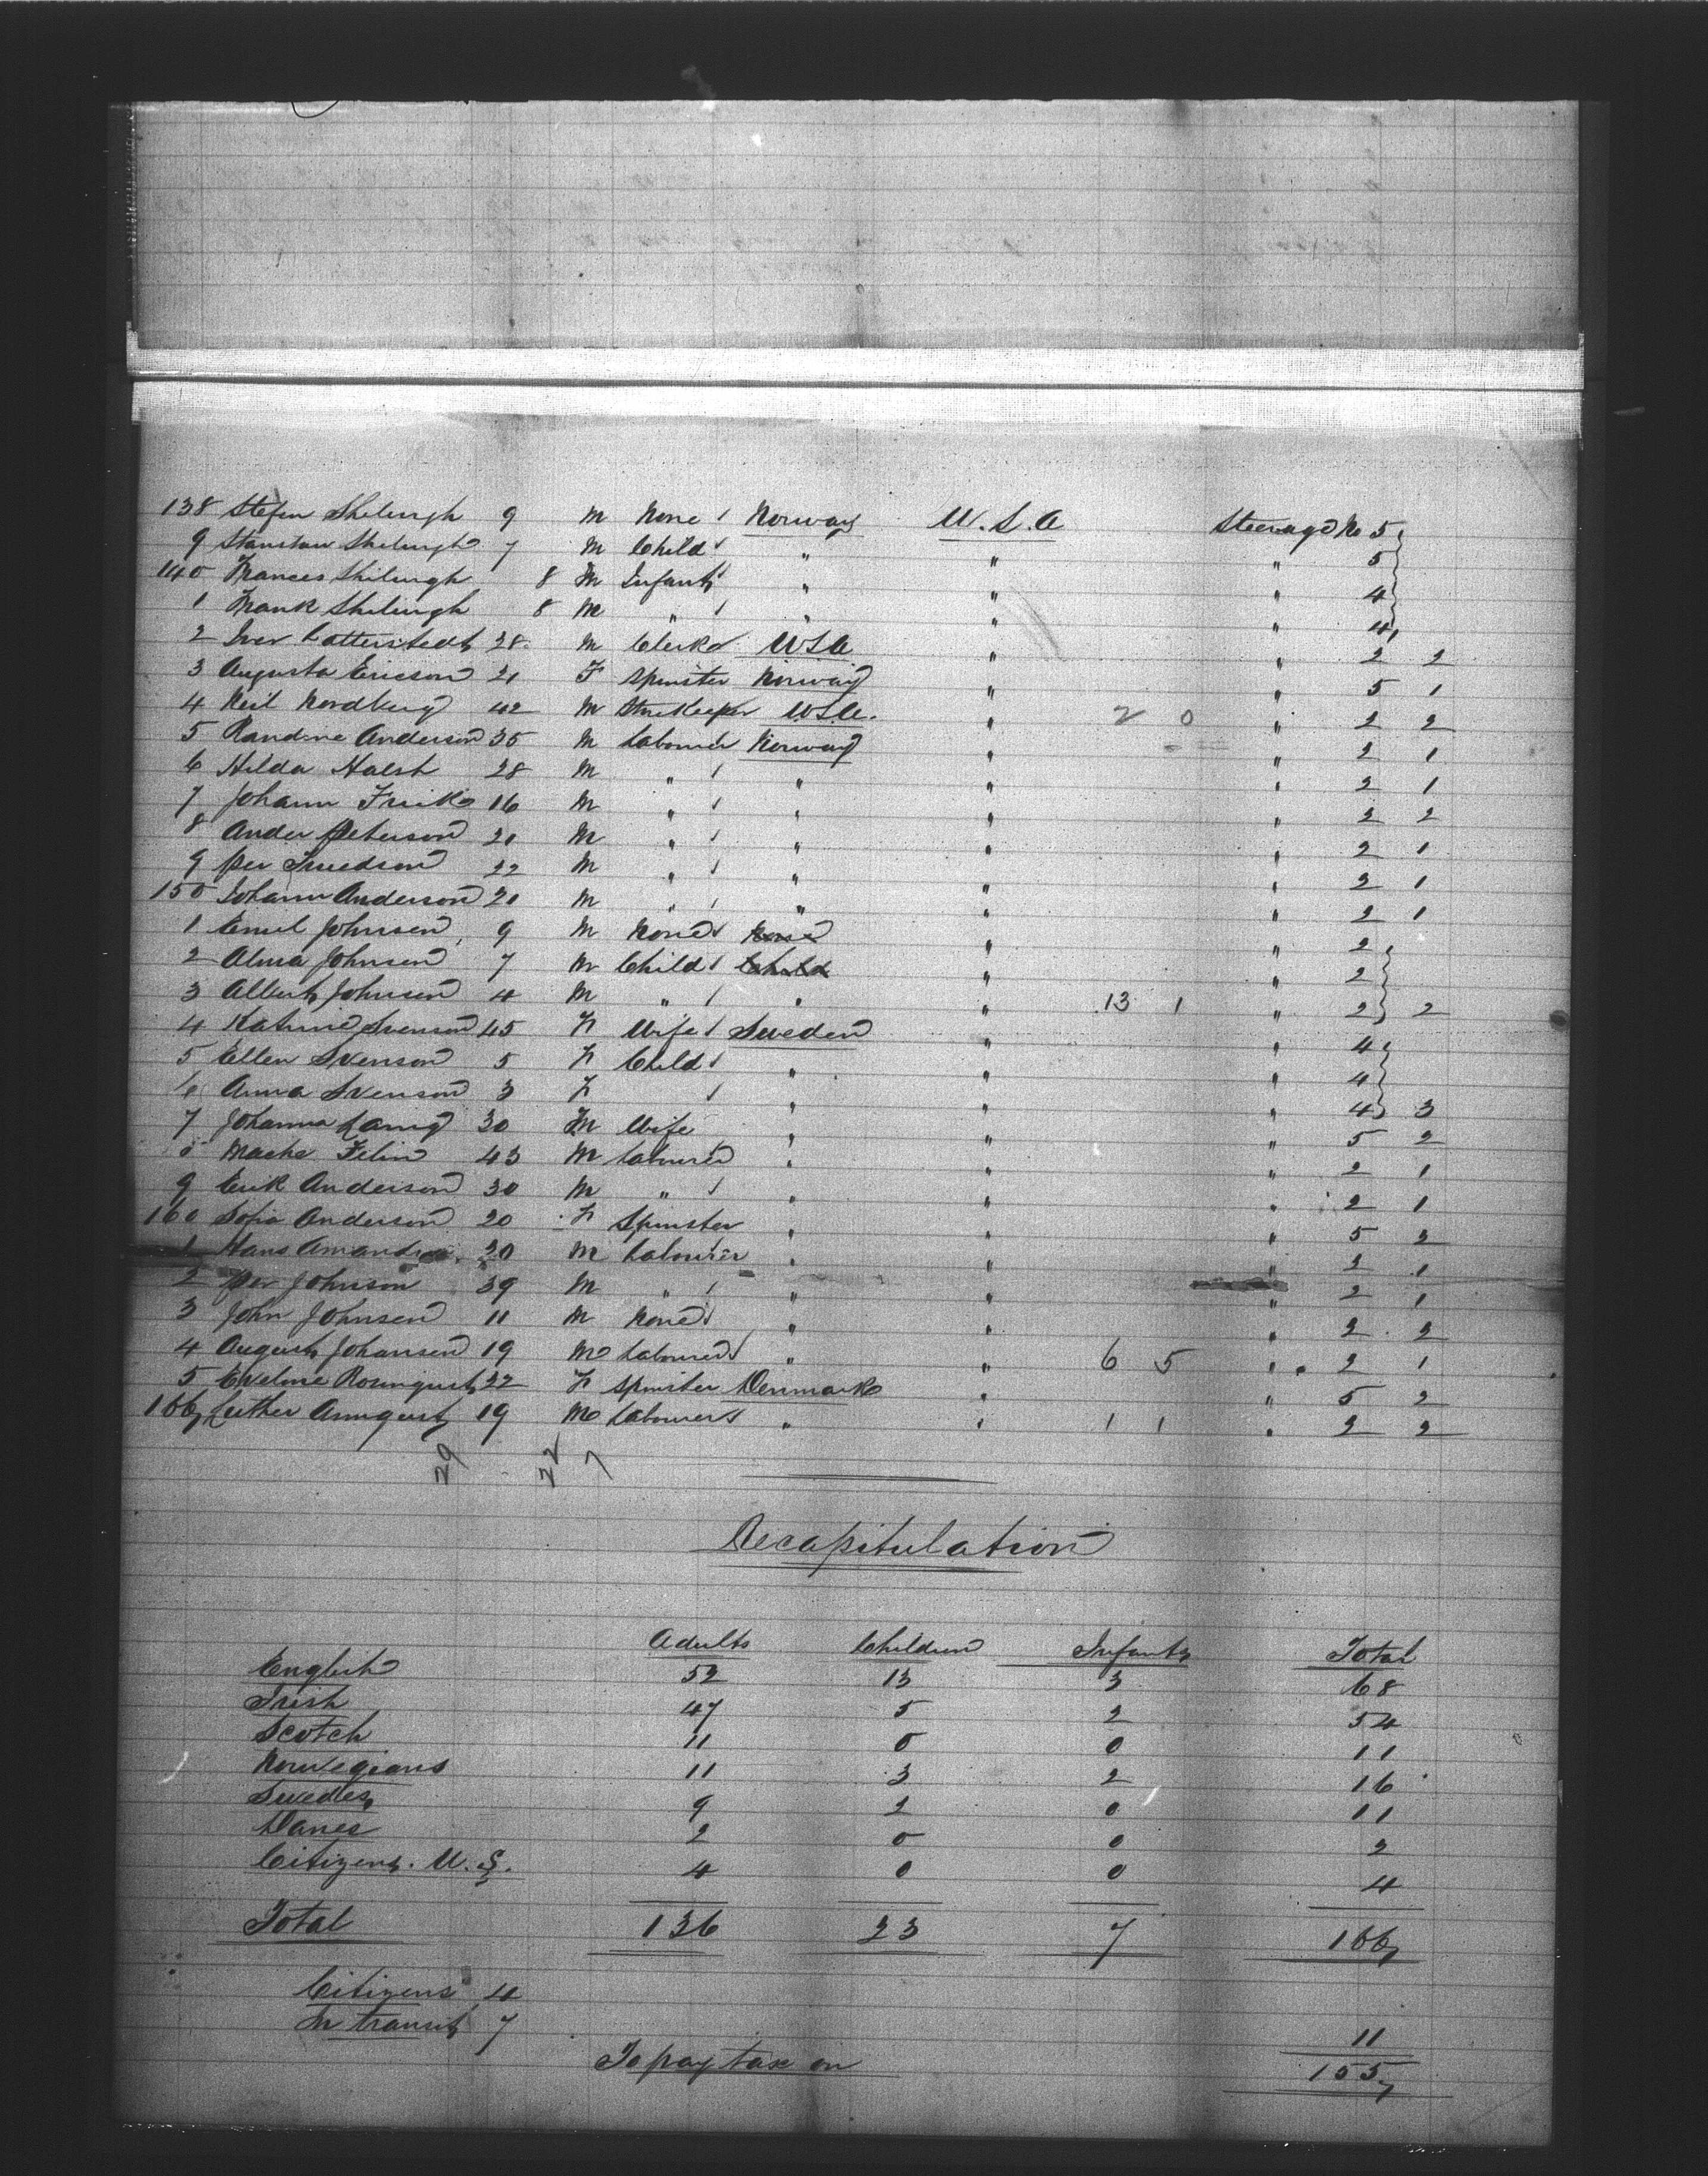 138 Stefen Shilingh 9 M None " Norway U.S.A Steerage No 5
9 Stanslaw Shilingh 7 M Child " " " " 5
140 Frances Shilingh 8 M Infant " " " " 4
1 Frank Shilingh 8 M " " " " " 4
2 Iver 28 M Clerk USA " " 2 2
3 Augusta Ericson 21 F Spinster Norway " " 5 1
4 Neil Nordberg 42 M Storekeeper USA. " 2 0 " 2 2
5 Randine Anderson 35 M Labourer Norway " " 2 1
6 Hilda Halsh 28 M " " " " 2 1
7 Johann Frik 16 M " " " " 2 2
8 Ander Peterson 21 M " " " " 2 1
9 Per 22 M " " " " 2 1
150 Johann Anderson 21 M " " " " 2 1
1 Emil Johnsen 9 M None None " " 2
2 Alma Johnsen 7 M Child Child " " 2
3 Albert Johnsen 4 M " " " 13 1 " 2 2
4 Katrine Svenson 45 F Wife Sweden " " 4
5 Ellen Svenson 5 F Child " " " 4
6 Anna Svenson 3 F " " " 4 3
7 Johanna 30 M Wife " " " 5 2
8 Mache Felin 43 M Labourer " " " 2 1
9 Erik Anderson 30 M " " " " 2 1
160 Sofia Anderson 20 F Spinster " " " 5 2
1 Hans 20 M Labourer " " " 2 1
2 Per Johnson 39 M " " " " 2 1
3 John Johnsen 11 M None " " " 2 2
4 August Johansen 19 M Labourer " " 6 5 " 2 1
5 Eveline 22 F Spinster Denmark " " 5 2
166 Luther 19 M Labourer " " 1 1 " 2 2
29 22 7
Recapitulation
Adults Children Infants Total
English 52 13 3 68
Irish 47 5 2 54
Scotch 11 0 0 11
Norwegians 11 3 2 16
Swedes 9 2 0 11
Danes 2 0 0 2
Citizens. U.S. 4 0 0 4
Total 136 23 7 166
Citizens 4
In transit 7 11
To pay tax on 155